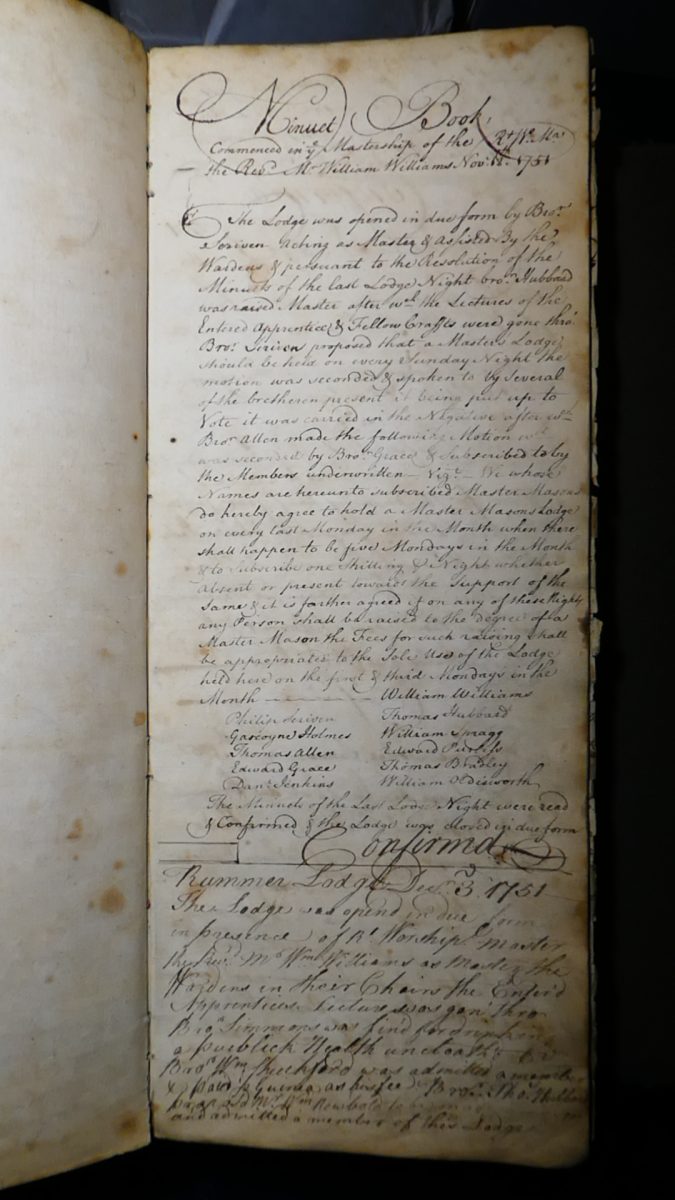 Minuet Book,
Commenced in ye Mastership of the Rt Wl Ma
the Revd. Mr. William Williams Nov. 18th. 1751
The Lodge was opened in due form by Bror.
Scriven acting as Master & assisted By the
Wardens & persuant to the Resolution of the
Minuets of the last Lodge Night bror. Hubbard
was raised Master after wch. the Lectures of the
Entered apprentice & Fellow Craffts were gone thro.
Bror. Scriven proposed that a Masters Lodge
should be held on every Sunday Night the
motion was seconded & spoken to by several
of the bretheren present it being put up to
Vote it was carried in the Negative after wch.
Bror. Allen made the following Motion wch
was seconded by Bror. Grace & Subscribed to by
the Members underwritten — Vizt. — We whose
Names are hereunto subscribed Master Masons
do hereby agree to hold a Master Masons Lodge
on every last Monday in the Month when there
shall happen to be five Mondays in the Month
& to Subscribe one Shilling Night whether
absent or present towards the Support of the
Same & it is farther agreed if on any of these Nights
any Person shall be raised to the degree of a
Master Mason the Fees for such raising shall
be appropriated to the Sole Use of the Lodge
held here on the first & third Mondays in the
Month — William Williams
Philip Scriven Thomas Hubbard
Gascoyne Holmes William Spragg
Thomas Allen Edward Purtiss
Edward Grace Thomas Bradley
Danl. Jenkins William Odisworth
The Minuets of the Last Lodge Night were read
& Confirmed & the Lodge was closed in due form
Confirmd
Rummer Lodge Decr. 3d. 1751
The Lodge was opend in due form
in presence of Rt. Worshipl. Master
the Revd. Mr. Wm. Williams as Master the
Wardens in their Chairs the Enter'd
Apprentices Lecture was gon thro
Bror. Simmons was find for drinking
a Publick Health uncloathd
Bror. Wm. Shuckford was admitted a member
& paid ½ Guinea as his fee Bror. Tho. Hubbard
Mr. Wm. Newbold to
and admitted a member of this Lodge